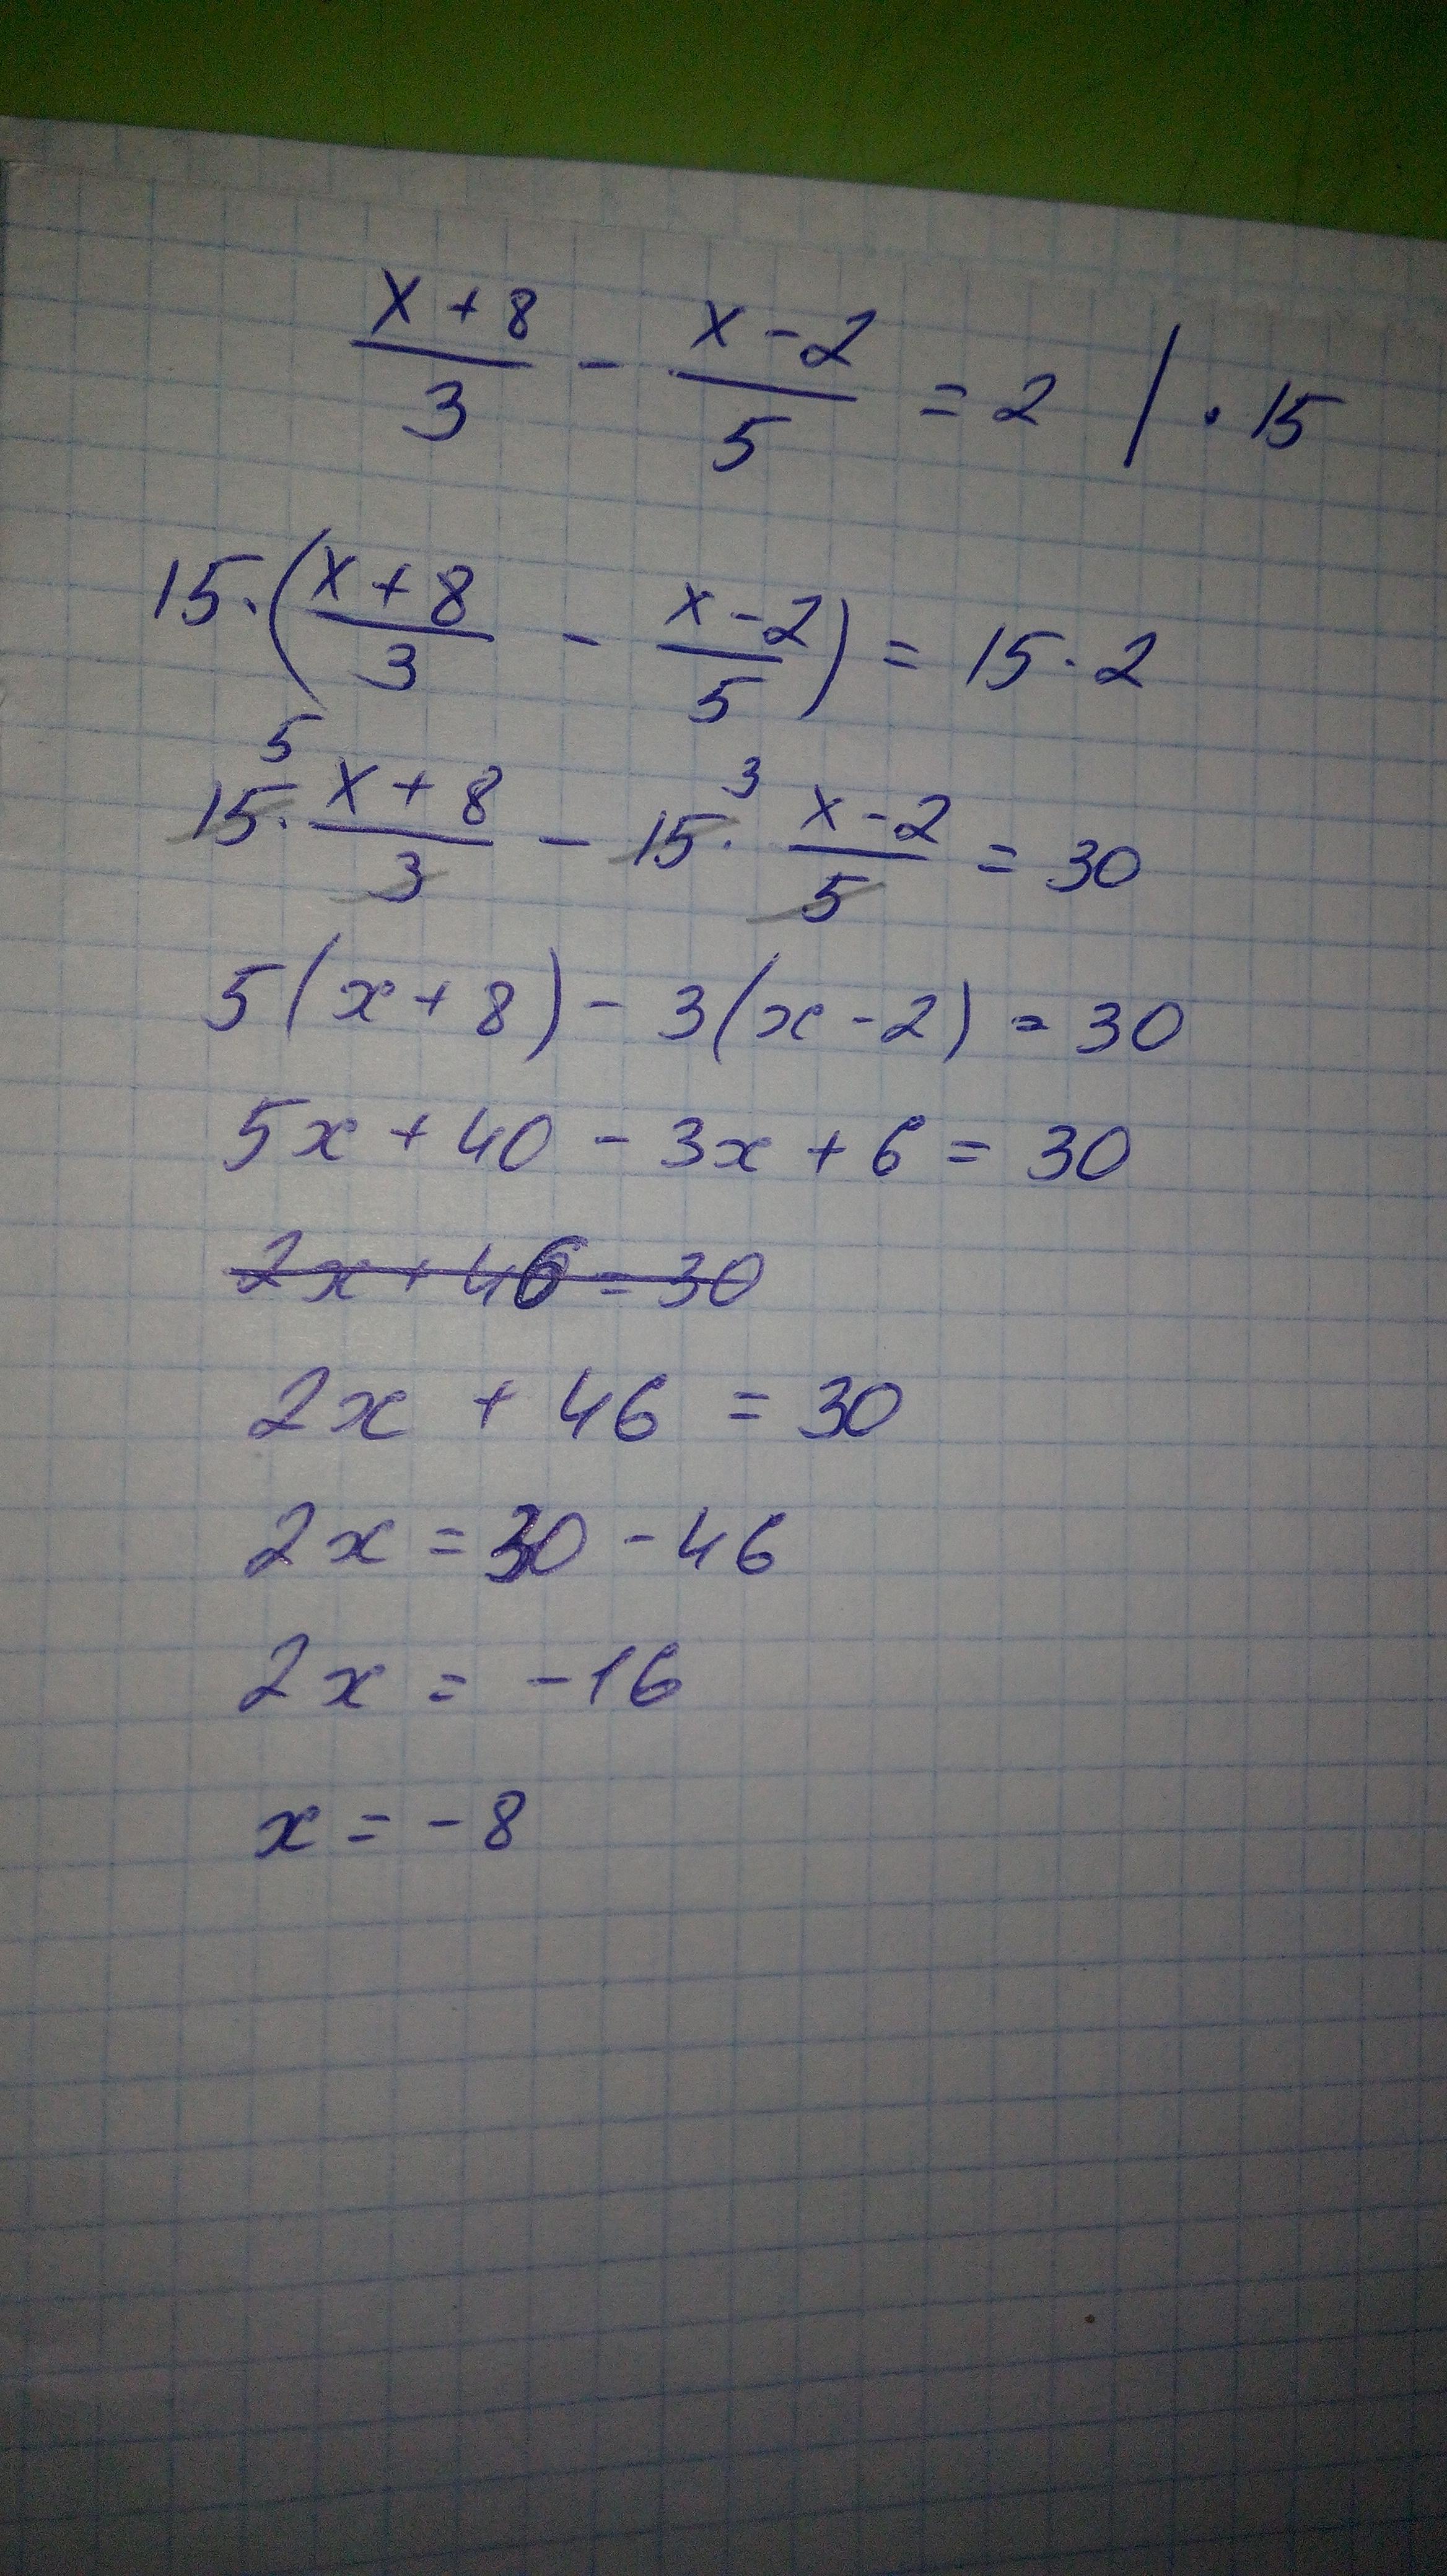 x + 8 / 3 - x - 2 / 5 = 2 | · 15
15 · (x + 8 / 3 - x - 2 / 5) = 15 · 2
5 3
15 · x + 8 / 3 - 15 · x - 2 / 5 = 30
5(x + 8) - 3(x - 2) = 30
5x + 40 - 3x + 6 = 30
2x + 46 = 30
2x + 46 = 30
2x = 30 - 46
2x = -16
x = -8